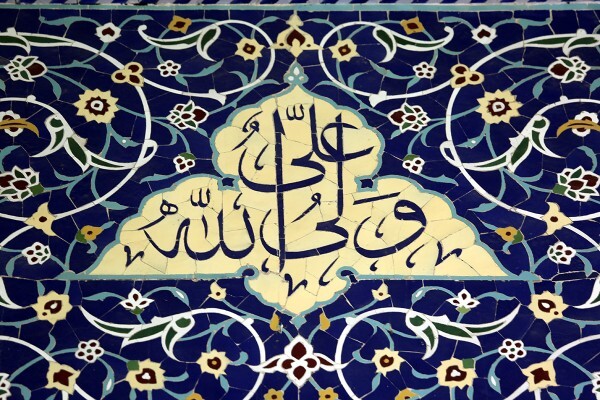 علیٌّ
ولیُّ اللّٰه